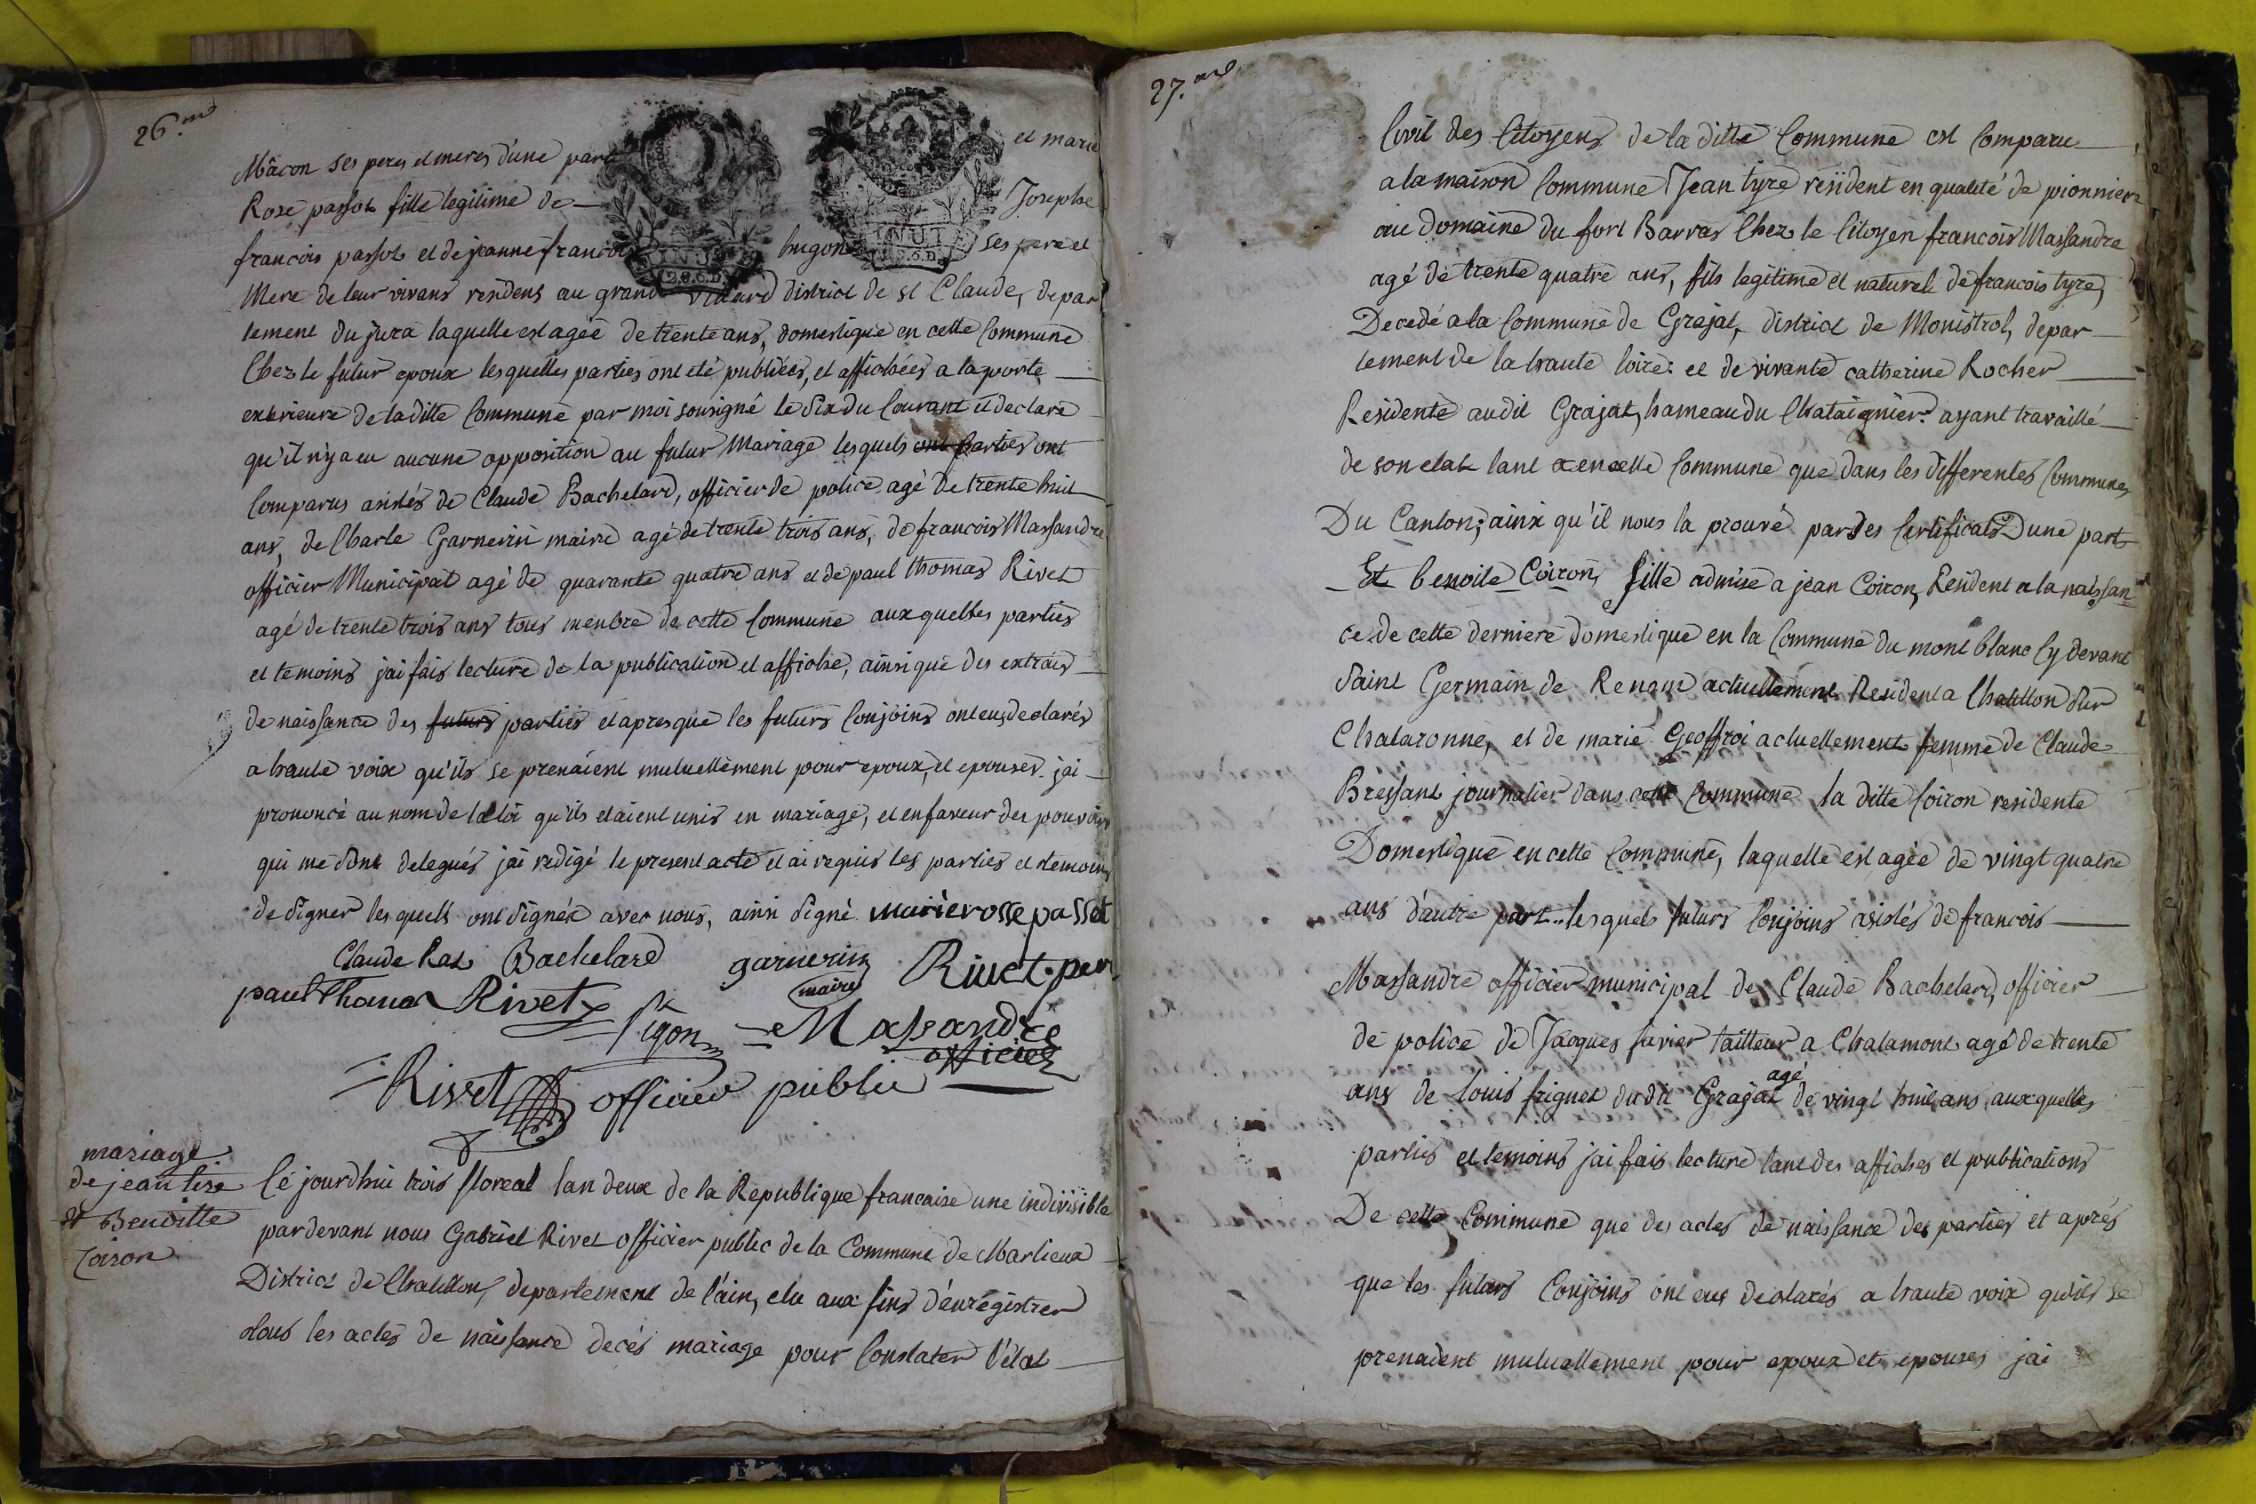 26.me
Mâcon ses peres et meres d'une part et marie
Rose passot fille legitime de Josephe
francois passot et de jeanne francoi hugon ses pere et
Mere de leur vivans residens au grand villard district de st Claude, depar
tement du jura laquelle est agée de trente ans, domestique en cette Commune
Chez le futur epoux lesquelles parties ont eté publiées, et affichées a la porte
exterieure de laditte Commune par moi sousigné le dix du Courant et declare
qu'il n'y a eu aucune opposition au futur Mariage lesquels ont parties ont
Comparus assistés de Claude Bachelard, officier de police agé de trente huit
ans, de Charle Garnerin maire agé de trente trois ans, de francois Massandre
officier Municipal agé de quarante quatre ans et de paul thomas Rivet
agé de trente trois ans tous menbre de cette Commune auxquelles parties
et temoins jai fais lecture de la publication et affiche, ainsi que des extrais
de naissance des futurs parties et apres que les futurs Conjoins ont eus declarés
a haute voix qu'ils se prenaient mutuellement pour epoux, et epouser jai
prononcé au nom de la loi qu'ils etaient unis en mariage, et en faveur des pouvoirs
qui me sont delegués jai redigé le present acte et ai requis les parties et temoins
de signer lesquels ont signés avec nous, ainsi signé marie rosse passot
Claude Rat Bachelard garnerin maire Rivet per
paul thomas Rivet figon Massandre officier
Rivet officier public
mariage
de jean tire
et Benoitte
Coiron
Cé jourdhui trois floreal lan deux de la Republique francaise une indivisible
pardevant nous Gabriel Rivet officier public de la Commune de Marlieux
District de Chatillon, departement de l'ain, elu aux fins d'enregistrer
tous les actes de naissance decés mariage pour Constater l'etat
27.me
Civil des Citoyens de la ditte Commune est Comparu
a la maison Commune Jean tyre resident en qualité de pionnier
au Domaine du fort Barras Chez le Citoyen francois Massandre
agé de trente quatre ans, fils legitime et naturel de francois tyre,
Decedé a la Commune de Grajat, district de Monistrol, depar
tement de la haute loire: et de vivante catherine Rocher
Residente audit Grajat, hameau du Chataignier: ayant travaillé
de son etat tant en cette Commune que dans les differentes Communes
Du Canton; ainsi qu'il nous la prouvé par des Certificats D'une part
Et benoite Coiron, fille admise a jean Coiron, Resident a la naissan
ce de cette derniere domestique en la Commune du mont blanc Cy devant
Saint Germain de Renom actuellement Resident a Chatillon sur
Chalaronne, et de marie Geoffroi actuellement femme de Claude
Bressant journalier dans cette Commune la ditte Coiron residente
Domestique en cette Commune, laquelle est agée de vingt quatre
ans d'autre part.. lesquels futurs Conjoins asistés de francois
Massandre officier municipal de Claude Bachelard, officier
de police de Jacques tailleur a Chalamont agé de trente
ans de louis frignet dudit Grajat agé de vingt huit ans auxquelles
parties et temoins jai fais lecture tant des affiches et publications
De cette Commune que des actes de naissance des parties et aprés
que les futurs Conjoins ont eus declarés a haute voix quils se
prenaient mutuellement pour epoux et epouses jai